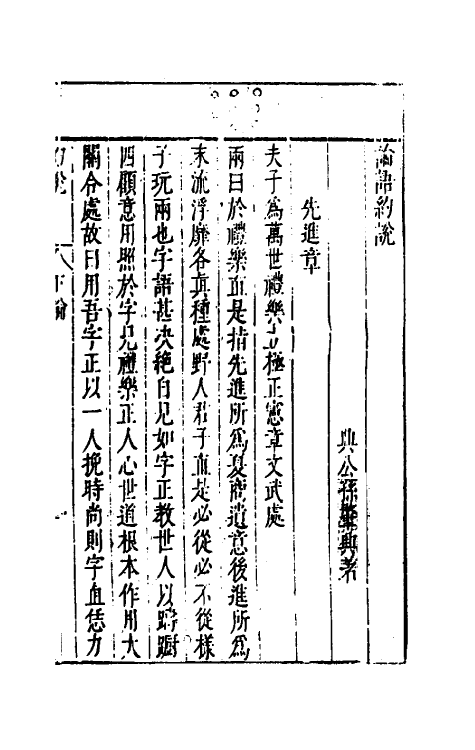 論語約說
典公孫肇興著
先進章
夫子為萬世禮樂立極正憲章文武處
兩曰於禮樂直是指先進所為夏商遺意後進所為
末流浮靡各具種處野人君子直是必從必不從樣
子玩兩也字語甚決絕自見如字正教世人以躊躇
四顧意用照於字見禮樂正人心世道根本作用大
關令處故曰用吾字正以一人挽時尚則字直恁力
約說 下論 一